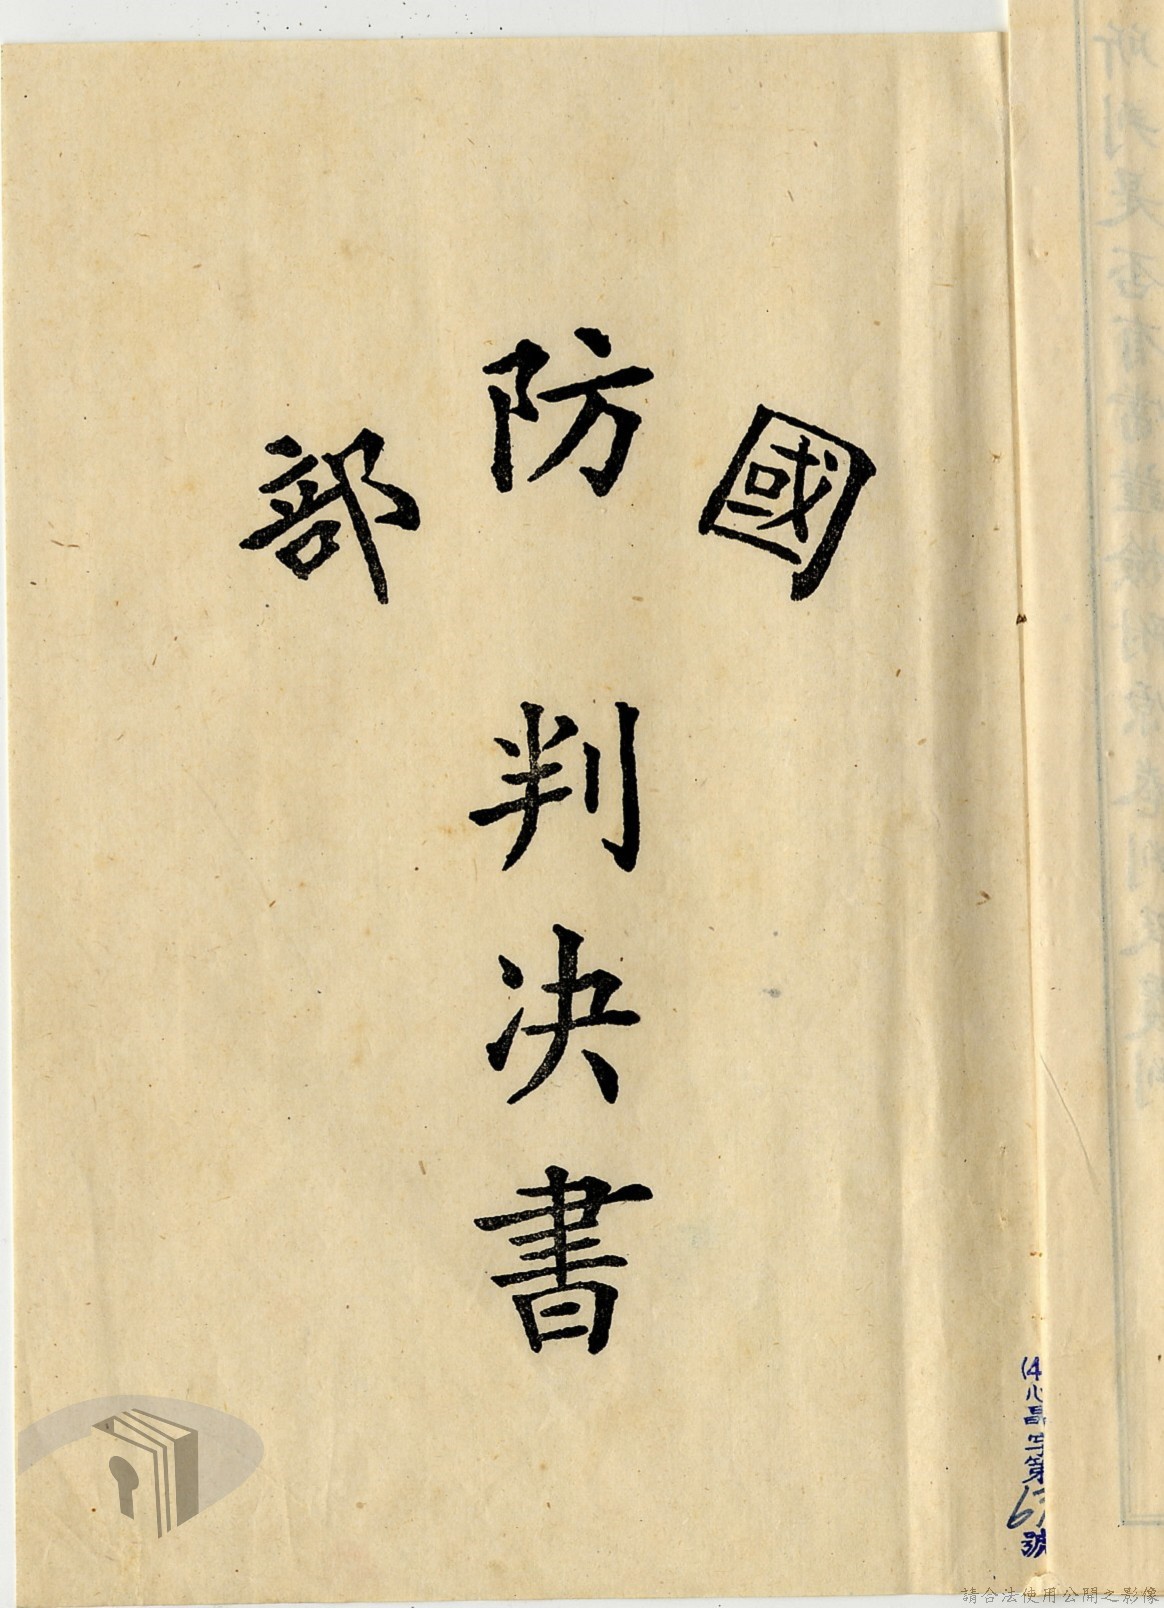 國防部
判決書
號
請合法使用公開之影像